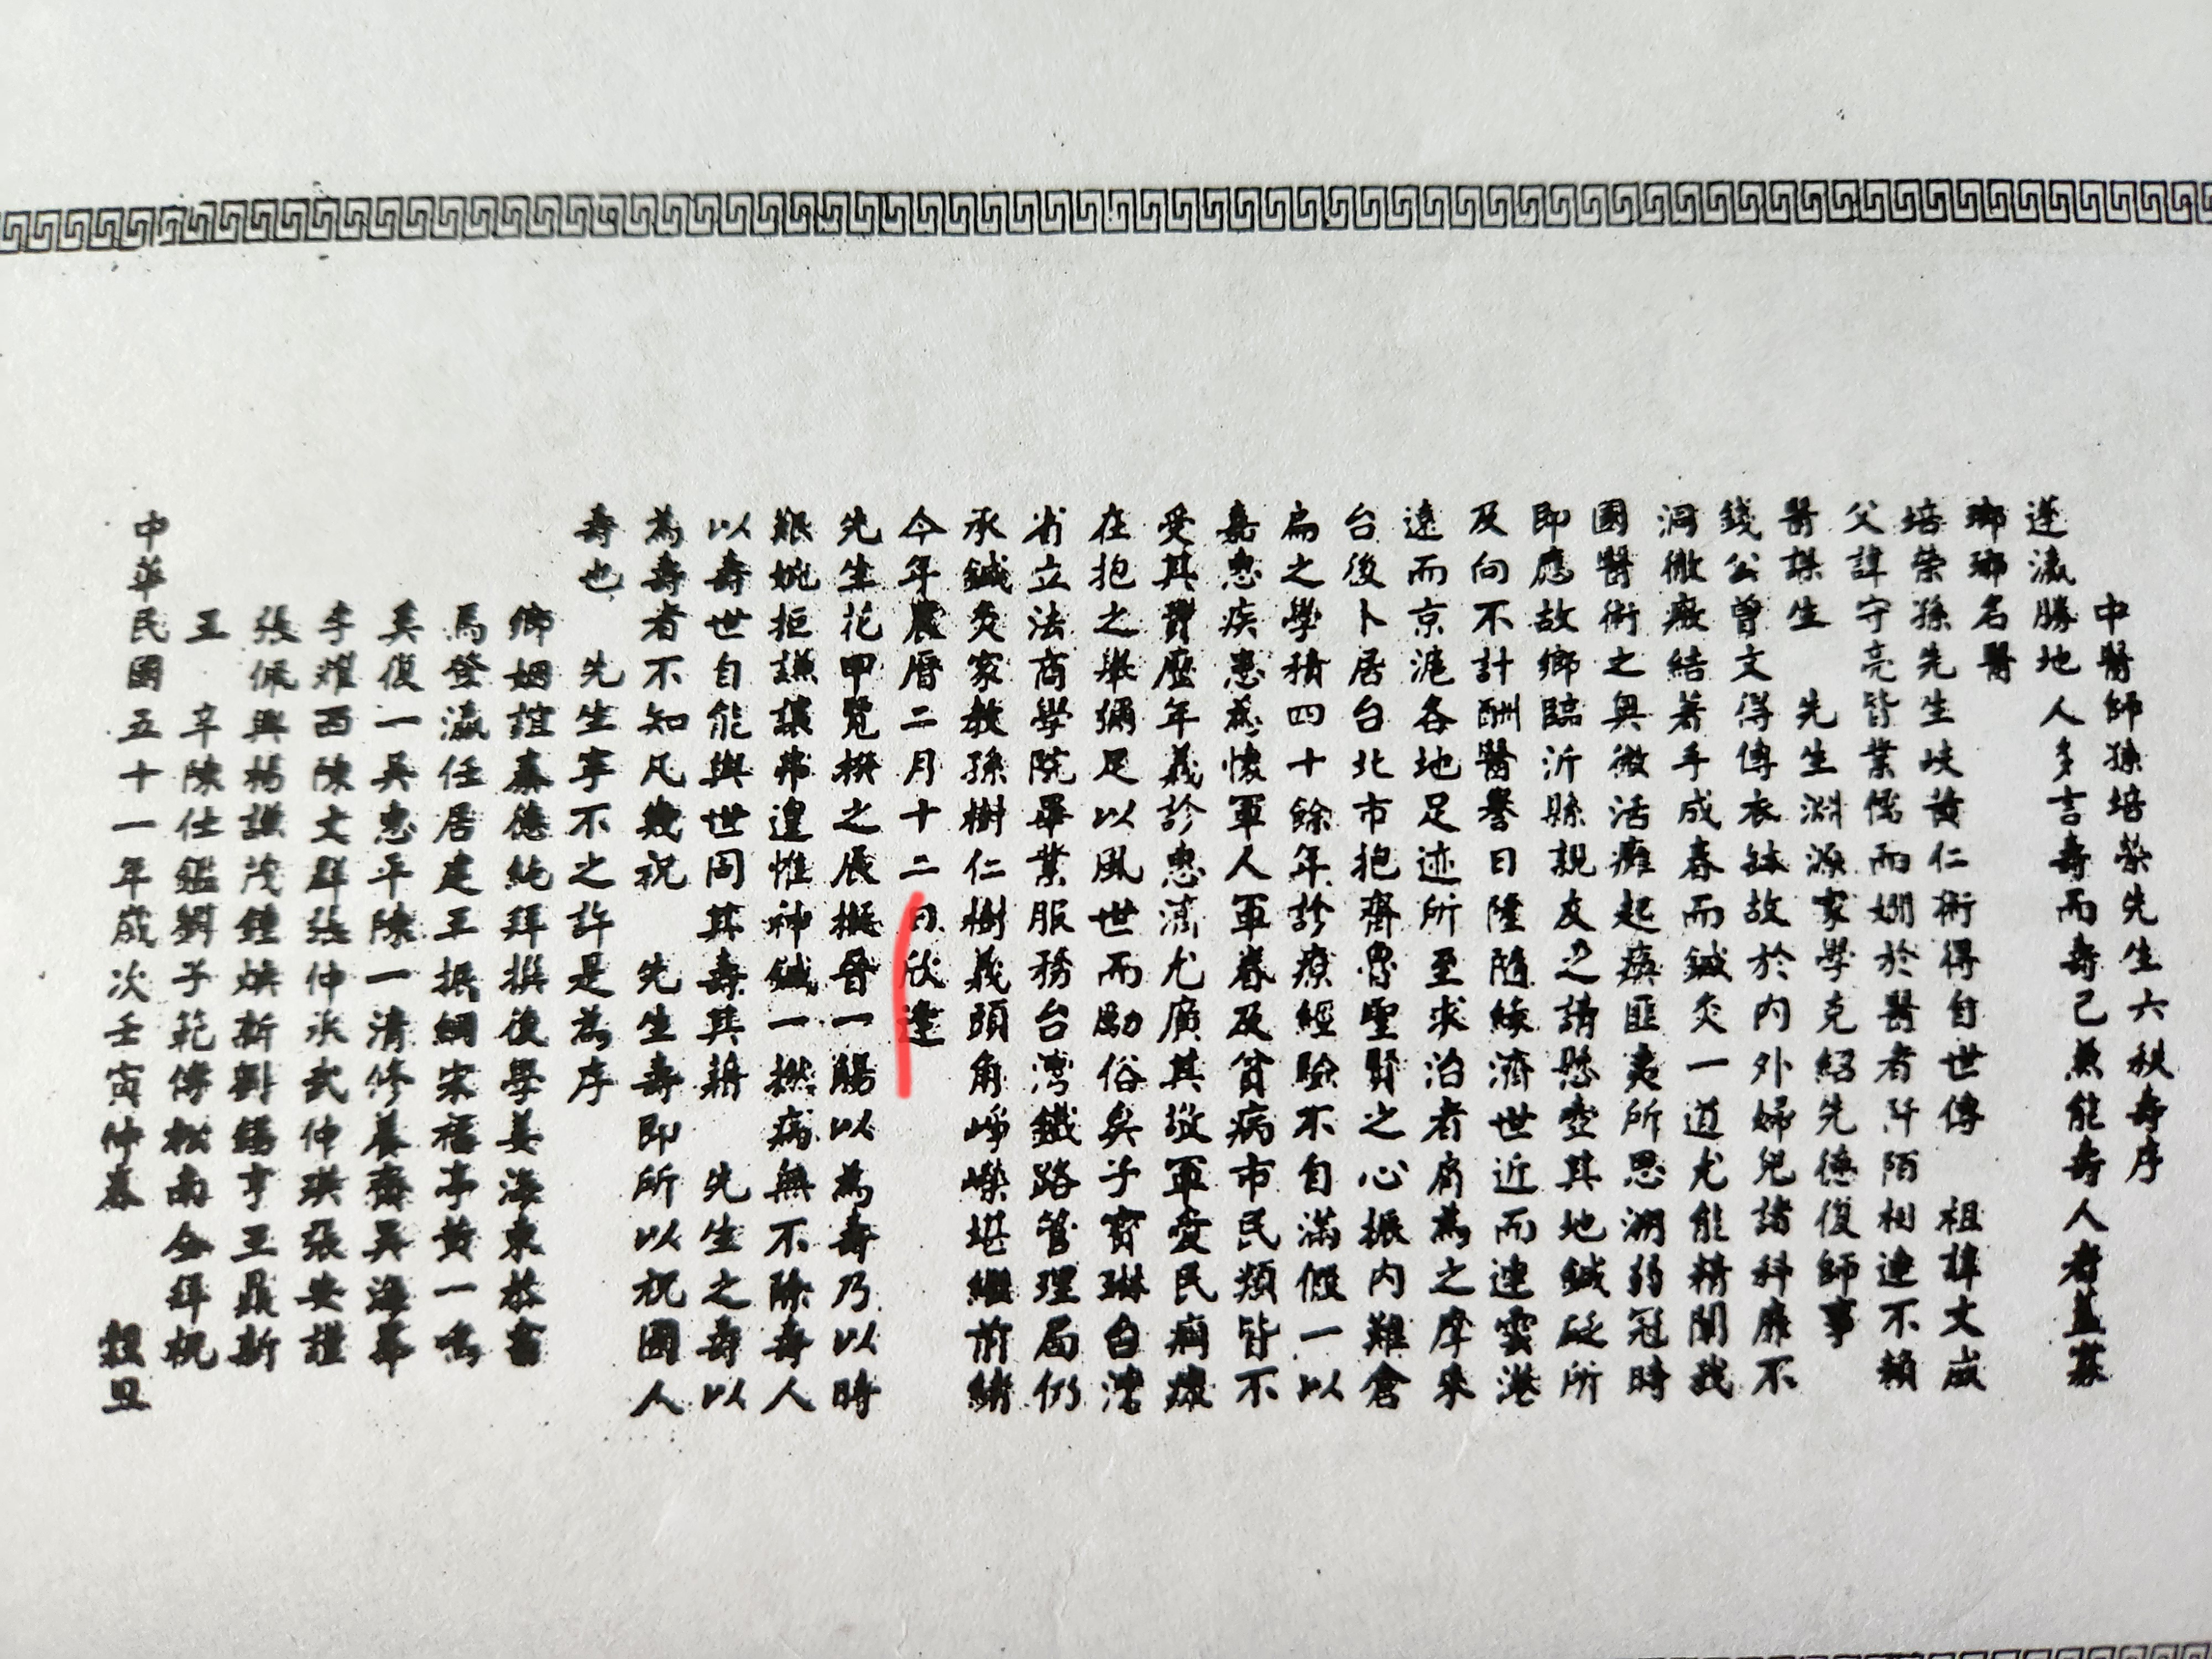 中醫師孫培榮先生六秩壽序
蓬瀛勝地人多言壽而壽己兼能壽人者蓋寡
瑯瑯名醫
培榮孫先生岐黃仁術得自世傳 祖諱文成
父諱守亮皆業儒而嫻於醫者阡陌相連不賴
醫謀生 先生淵源家學克紹先德復師事
錢公曾文得傳衣缽故於內外婦兒諸科靡不
洞徹癥結著手成春而鍼灸一道尤能精闡我
國醫術之奧微活癱起瘓匪夷所思溯弱冠時
即應故鄉臨沂縣親友之請懸壺其地鍼砭所
及向不計酬醫譽日隆隨緣濟世近而連雲港
遠而京滬各地足迹所至求治者肩為之摩來
台後卜居台北市抱齊魯聖賢之心振內難倉
扁之學積四十餘年診療經驗不自滿假一以
嘉惠疾患為懷軍人軍眷及貧病市民類皆不
受其費歷年義診惠濟尤廣其敬軍愛民痌瘝
在抱之舉彌足以風世而勵俗矣子寶琳台灣
省立法商學院畢業服務台灣鐵路管理局仍
承鍼灸家教孫樹仁樹義頭角崢嶸堪繼前緒
今年農曆二月十二日欣逢
先生花甲覽揆之辰擬晉一觴以為壽乃以時
艱婉拒謙讓弗遑惟神鍼一撚病無不除壽人
以壽世自能與世同其壽其耕 先生之壽以
為壽者不知凡幾祝 先生壽即所以祝國人
壽也 先生寧不之許是為序
鄉姻誼秦德純拜撰後學姜海東恭書
馬登瀛任居建王振綱宋福亭黃一鳴
奚復一吳忠平陳一清修養齋吳海華
李耀西陳文群張仲承武仲琪張安謹
張佩興楊謙茂鍾煥新劉錫亨王鼎新
王 辛陳仕鑑劉子範傅松南仝拜祝
中華民國五十一年歲次壬寅仲春 穀旦